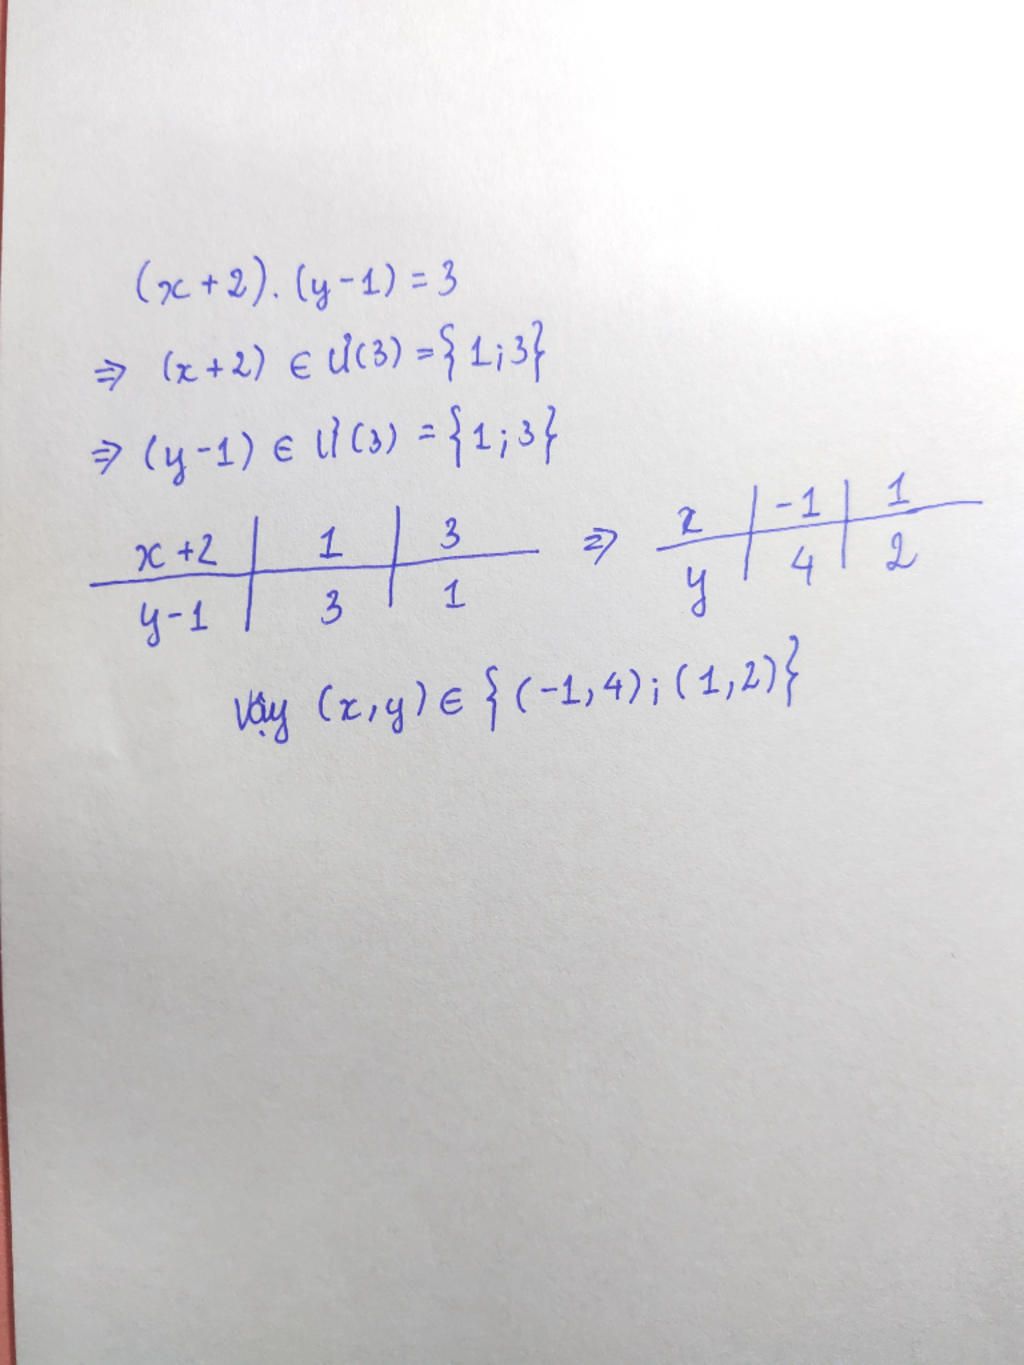 (x+2).(y-1)=3
⇒ (x+2) ∈ Ư(3) = {1;3}
⇒ (y-1) ∈ Ư(3) = {1;3}
x+2 | 1 | 3
y-1 | 3 | 1
⇒ x | -1 | 1
y | 4 | 2
Vậy (x,y) ∈ {(-1,4);(1,2)}